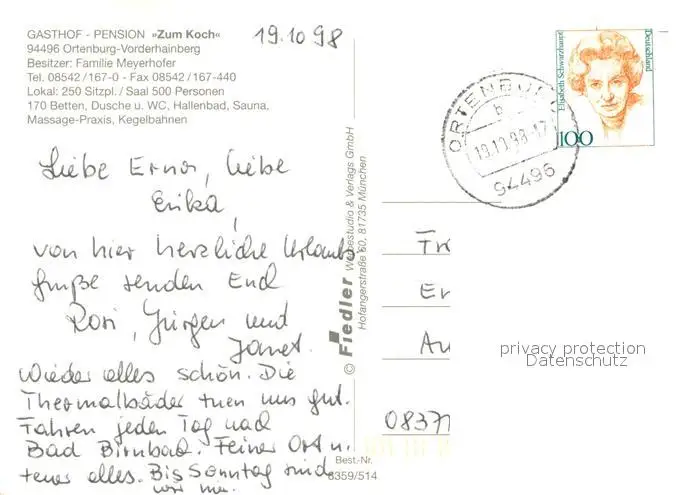 GASTHOF - PENSION »Zum Koch«
94496 Ortenburg-Vorderhainberg
Besitzer: Familie Meyerhofer
Tel. 08542/167-0 - Fax 08542/167-440
Lokal: 250 Sitzpl./Saal 500 Personen
170 Betten, Dusche u. WC, Hallenbad, Sauna,
Massage-Praxis, Kegelbahnen
19.10 98
Liebe Erna, liebe
Erika,
von hier herzliche Urlaubs
grüße senden Euch
Rosi, Jürgen und
Janet.
Wieder alles schön. Die
Thermalbäder tuen uns gut.
Fahren jeden Tag nach
Bad Birnbach. Feiner Ort u.
teuer alles. Bis Sonntag sind
wir hier.
© Fiedler Werbestudio & Verlags GmbH
Hofangerstraße 60, 81735 München
Best.-Nr.
8359/514
Elisabeth Schwarzhaupt
Deutschland
100
ORTENBURG
b
19.10.98-17
94496
Fr
Er
Au
0837
privacy protection
Datenschutz